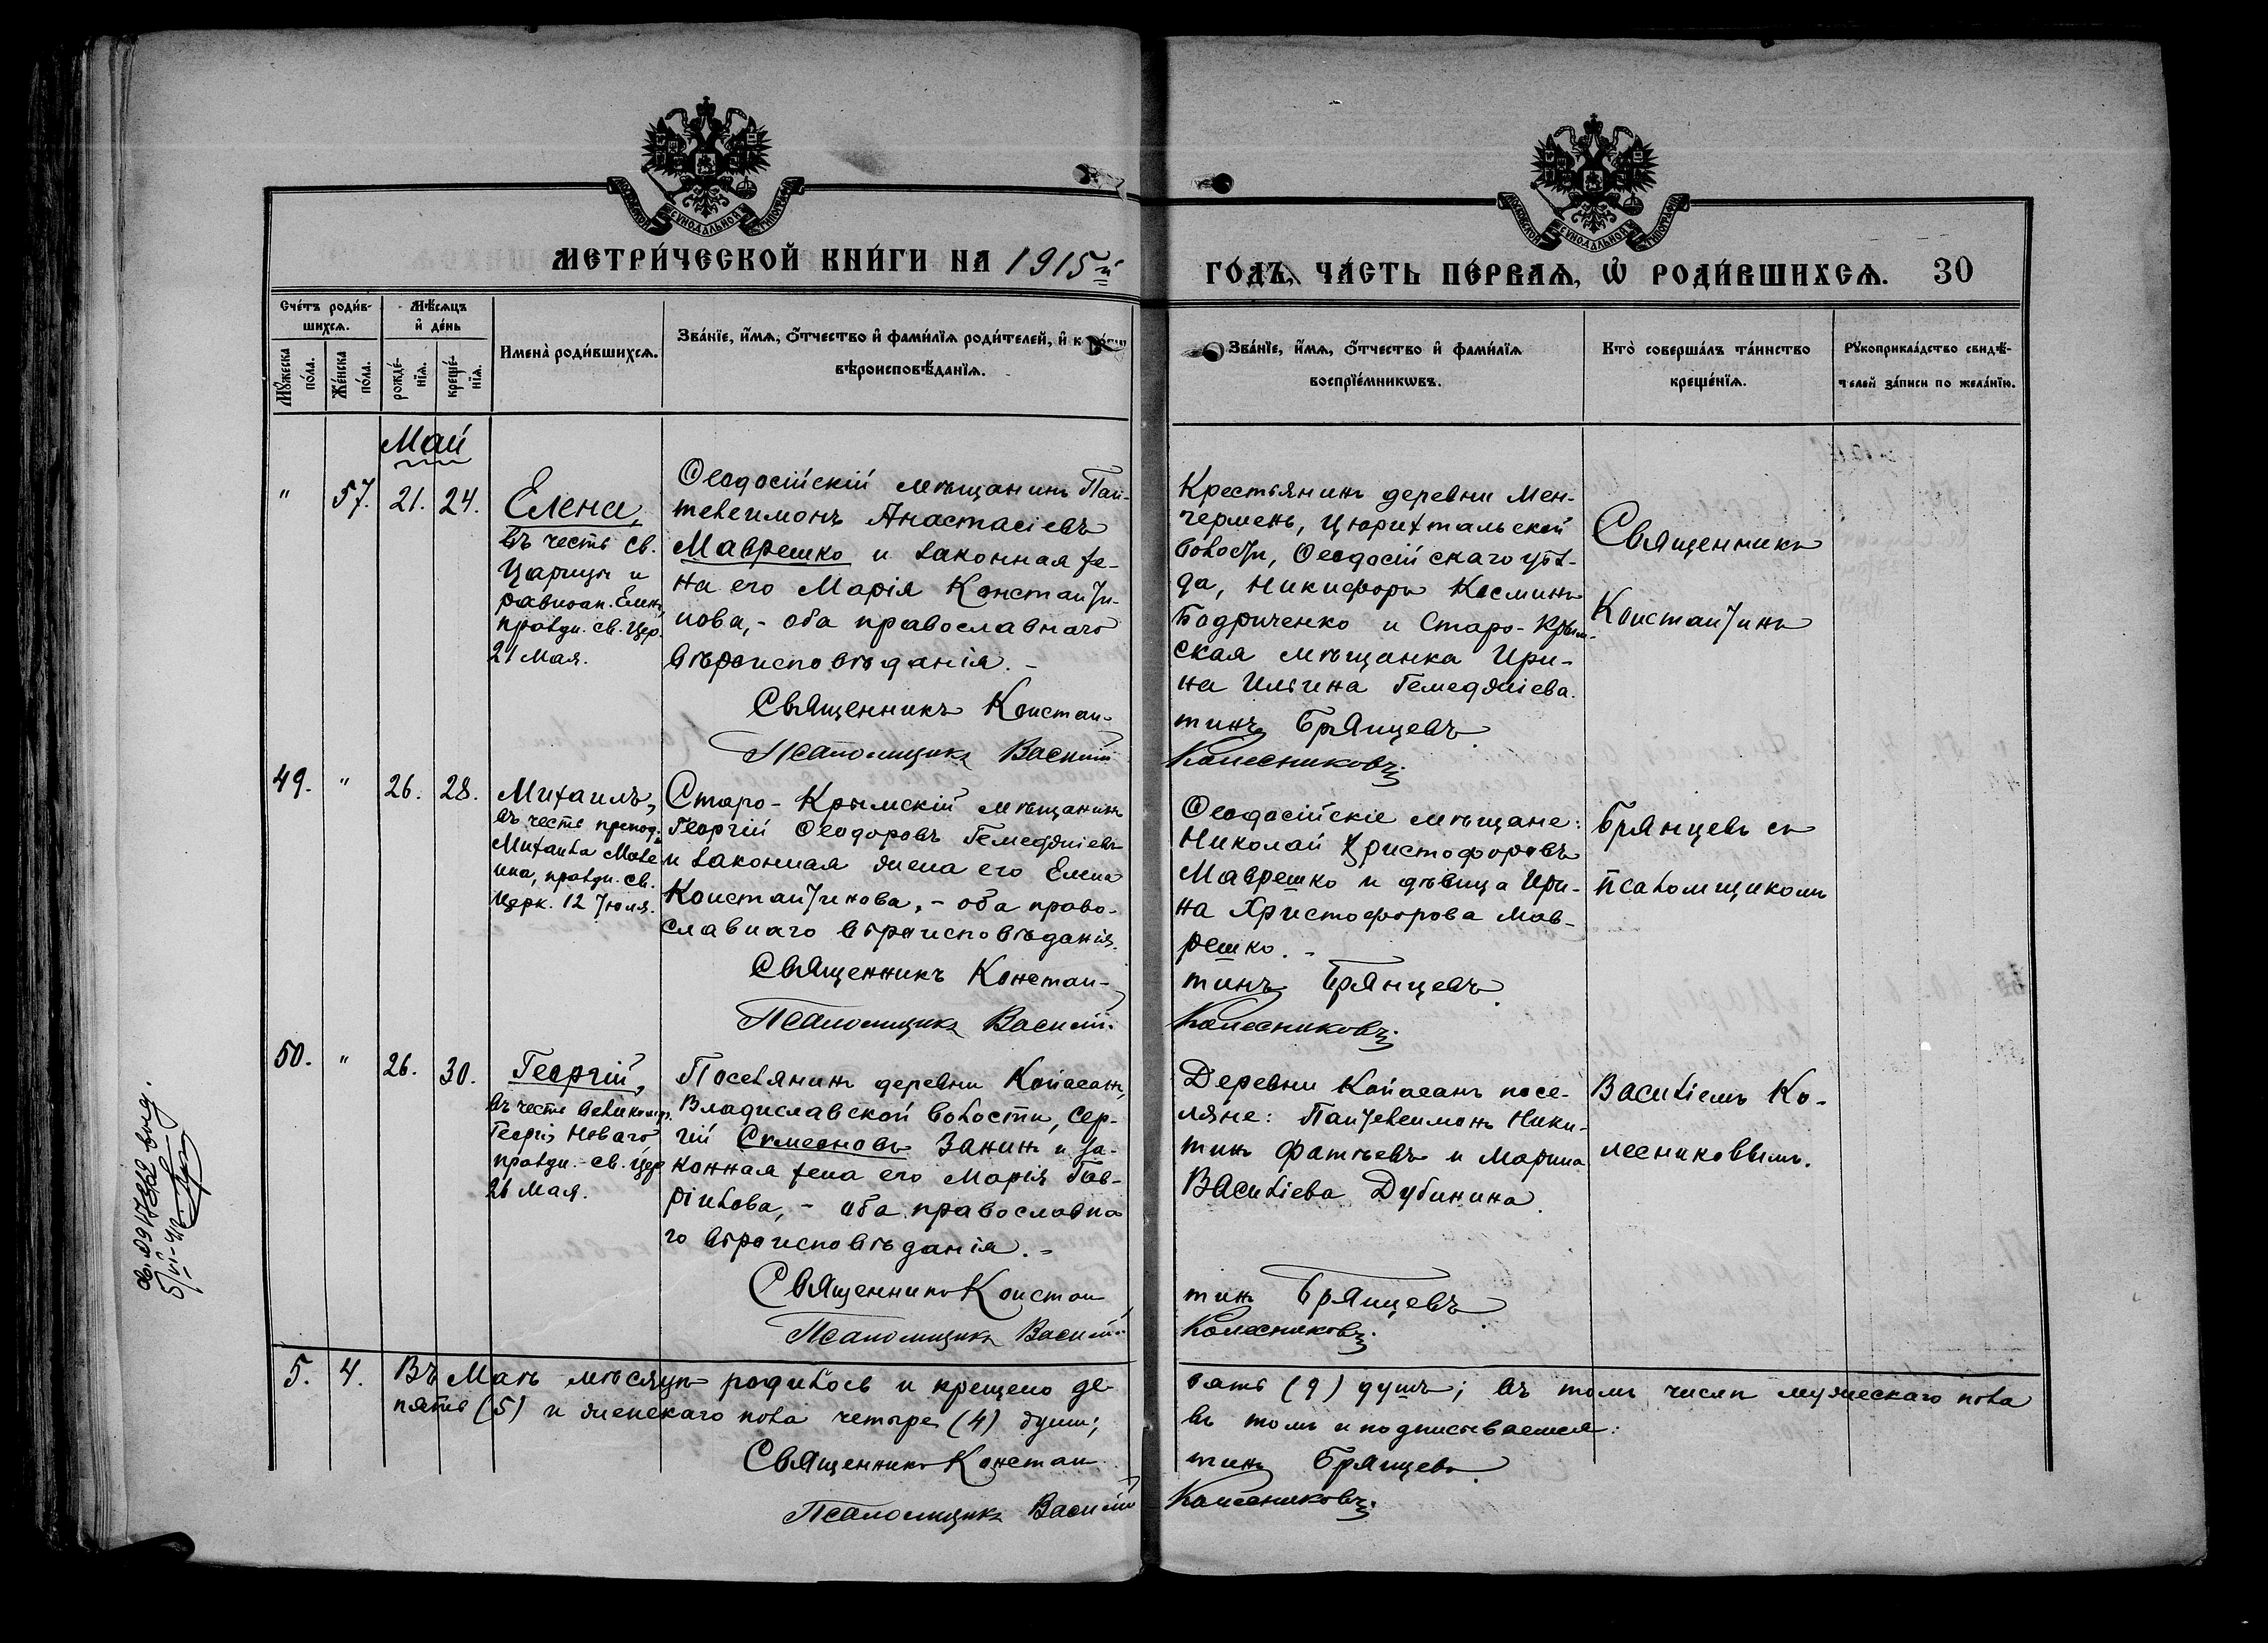 МЕТРИ́ЧЕСКОЙ КНИ́ГИ НА 1915й
ГО́ДЪ, ЧА́СТЬ ПЕ́РВАѦ, Ѽ РОДИ́ВШИХСѦ. 30
Сче́тъ роди́в-
шихсѧ.
Мѣ́сѧцъ
и҆ де́нь
Мꙋ́жеска
по́ла.
Же́нска
по́ла.
рожде́-
нїѧ.
креще́-
нїѧ.
Имена̀ роди́вшихсѧ.
Зва́нїе, и҆́мѧ, о҆́тчество и҆ фами́лїѧ роди́телей, и҆ к
вѣроисповѣ́данїѧ.
Зва́нїе, и҆́мѧ, о҆́тчество и҆ фами́лїѧ
воспрїе́мникѡвъ.
Кто̀ соверша́лъ та́инство
креще́нїѧ.
Рꙋкоприкла́дство свидѣ́-
телей за́писи по жела́нїю.
Май
" 57. 21. 24.
Елена,
въ честь св.
Царицы и
равноап. Елены,
праздн. св. Цер.
21 Мая.
Ѳеодосійскій мѣщанинъ Пан-
телеимонъ Анастасіевъ
Маврешко и законная же-
на его Марія Константи-
нова, - оба православнаго
вѣроисповѣданія. -
Священникъ Констан-
Псаломщикъ Василій
Крестьянинъ деревни Мен-
гермень, Цюрихтальской
волости, Ѳеодосійскаго уѣз-
да, Никифоръ Косминъ
Бодриченко и Старо-Крым-
ская мѣщанка Ири-
на Ильина Гемеджіева.
тинъ Брянцевъ.
Колесниковъ.
Священникъ
Константинъ
49. " 26. 28.
Михаилъ,
въ честь препод.
Михаила Мале
ина, праздн. св.
Церк. 12 Іюля.
Старо-Крымскій мѣщанинъ
Георгій Ѳеодоровъ Гемеджіевъ
и законная жена его Елена
Константинова, - оба право-
славнаго вѣроисповѣданія.
Священникъ Констан-
Псаломщикъ Василій
Ѳеодосійскіе мѣщане:
Николай Христофоровъ
Маврешко и дѣвица Ири-
на Христофорова Мав-
решко. -
тинъ Брянцевъ.
Колесниковъ.
Брянцевъ съ
псаломщикомъ
50. " 26. 30.
Георгій,
въ честь великомр.
Георгія Новаго
праздн. св. Цер
26 Мая.
Поселянинъ деревни Копасанъ,
Владиславской волости, Сер-
гій Симеоновъ Занинъ и за-
конная жена его Марія Гав-
ріилова, - оба православна
го вѣроисповѣданія. -
Священникъ Констан
Псаломщикъ Василій
Деревни Копасанъ посе-
ляне: Пантелеимонъ Ники-
тинъ Фатѣевъ и Марина
Василіева Дубинина.
тинъ Брянцевъ.
Колесниковъ.
Василіемъ Ко-
лесниковымъ.
5. 4. Въ Маѣ мѣсяцѣ родилось и крещено де-
вять (9) душъ; въ томъ числѣ мужескаго пола
пять (5) и женскаго пола четыре (4) души;
въ томъ и подписываемся:
Священникъ Констан
тинъ Брянцевъ.
Псаломщикъ Василій
Колесниковъ.